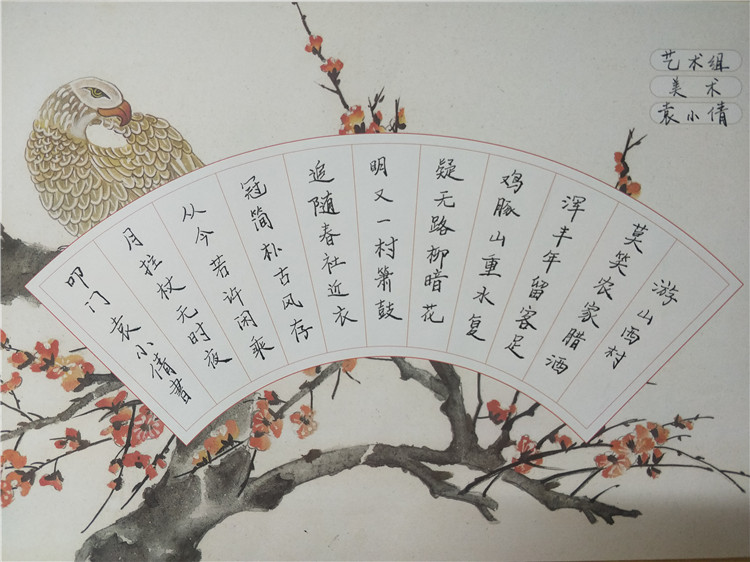 艺术组
美术
袁小倩
游山西村
莫笑农家腊酒
浑丰年留客足
鸡豚山重水复
疑无路柳暗花
明又一村箫鼓
追随春社近衣
冠简朴古风存
从今若许闲乘
月拄杖无时夜
叩门袁小倩書